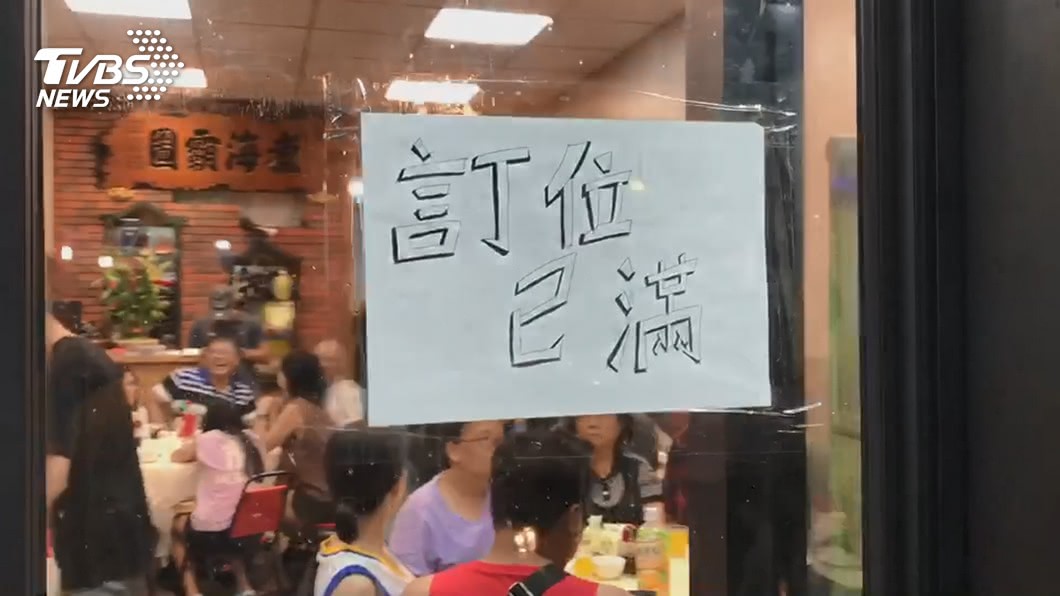 TVBS
NEWS
圖霸海臺
訂位
已滿